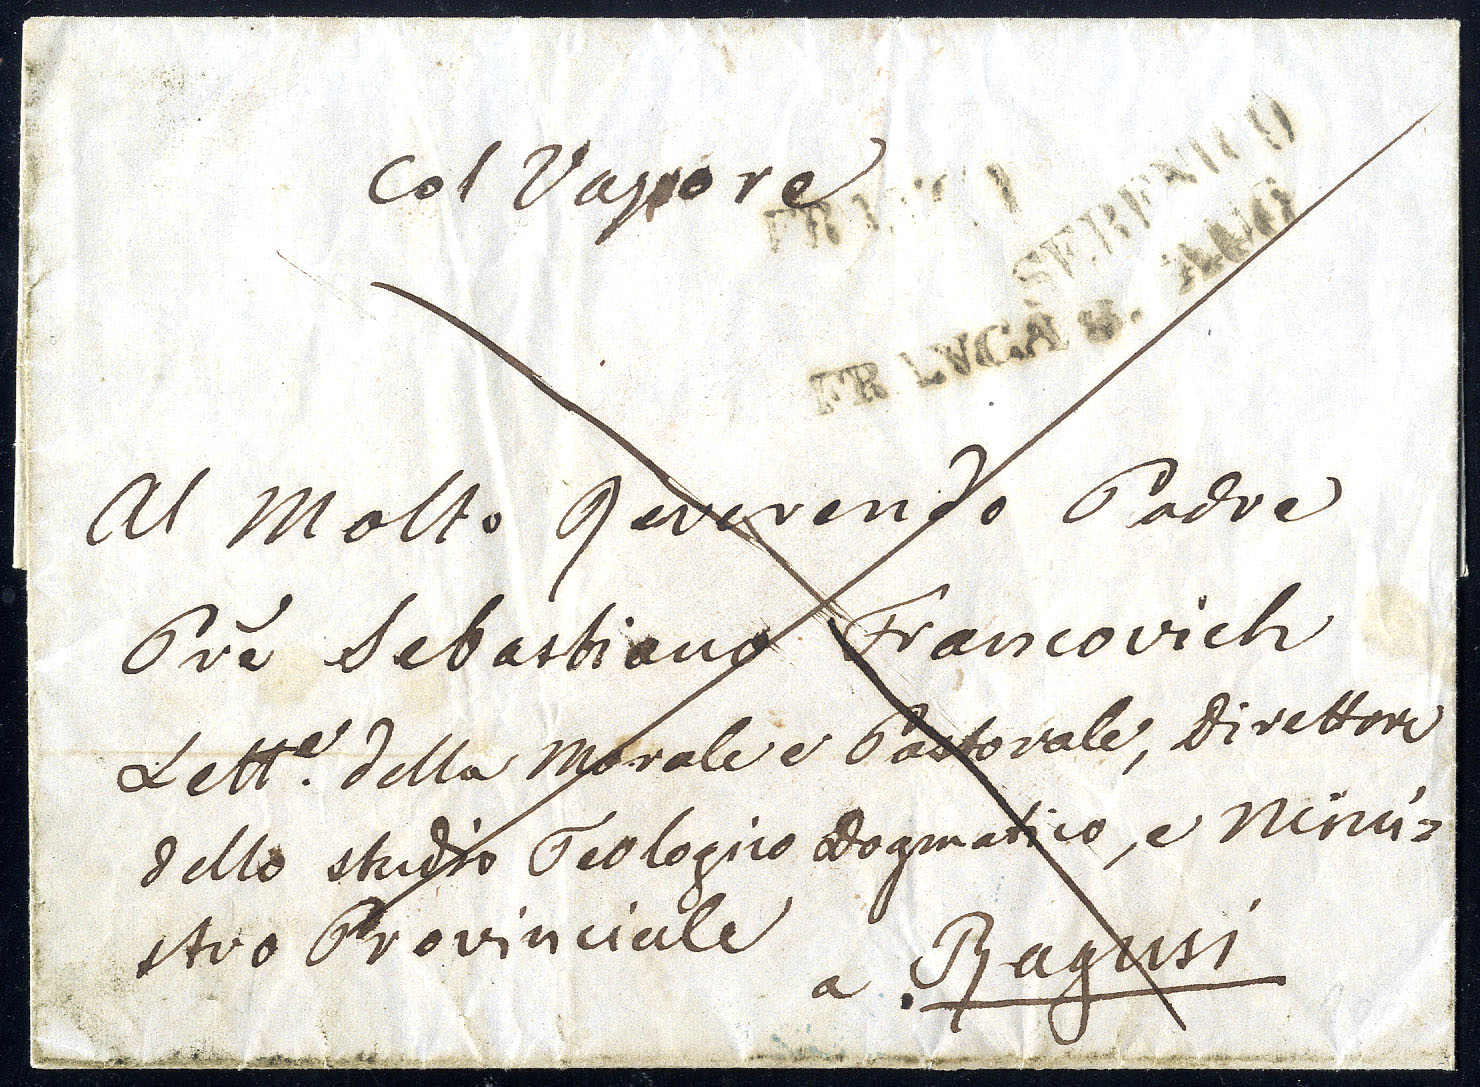 Col Vapore
FRANCA
SEBENICO
FRANCA 8. AUG
Al Molto Reverendo Padre
Prẽ Sebastiano Francovich
Lett.e della Morale e Pastorale, Direttore
dello studio Teologico Dogmatico, e Mini=
stro Provinciale
a Ragusi